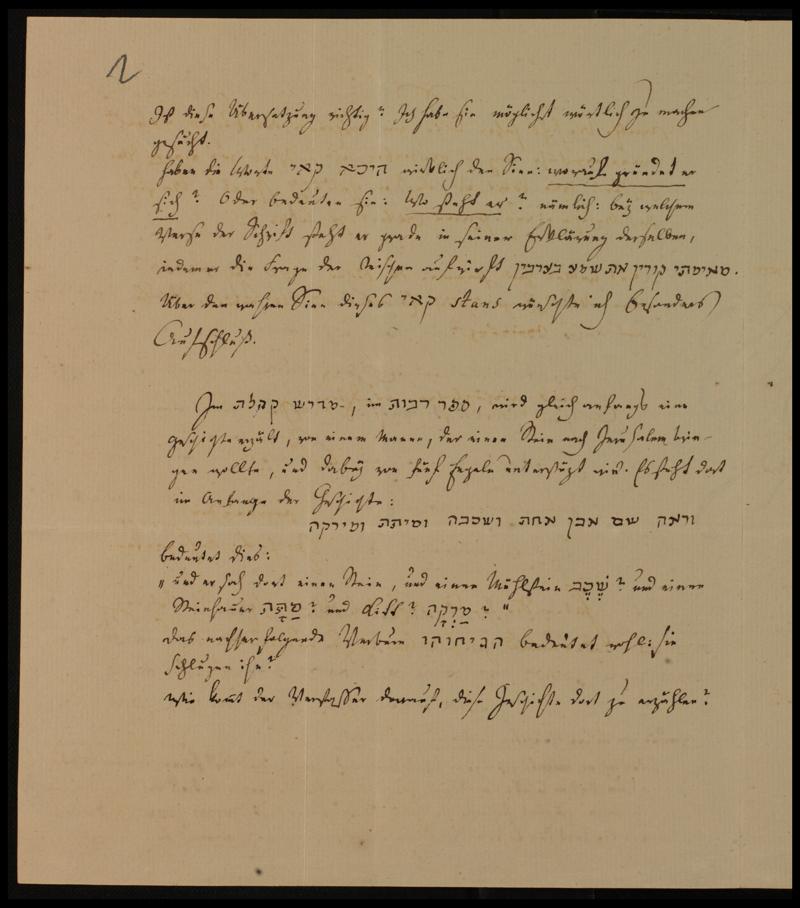 2
Ist diese Übersetzung richtig? Ich habe sie möglichst wörtlich zu machen
gesucht.
Haben die Worte היכא קאי wirklich den Sinn: worauf gründet er
sich? Oder bedeuten sie: Wo steht er? nämlich: bey welchem
Verse der Schrift steht er grade in seiner Erklärung derselben,
indem er die Frage der aufwirft מאימתי קורין את שמע בערבין.
Über den wahren Sinn dieses קאי stans wünschte ich besonders
Aufschluß.
Im מדרש קהלת, im ספר רבות, wird gleich anfangs eine
Geschichte erzält, von einem Manne, der einen Stein nach Jerusalem brin-
gen wollte, und dabey von fünf Engeln unterstüzt wird. Es steht dort
im Anfange der Geschichte:
וראה שם אבן אחת ושכבה וסיתת ומירקה
bedeutet dies:
„und er sah dort einen Stein, und einen Mühlstein שֶׁכֶב? und einen
Steinhauer מַתָּה? und ? מַרְקָה? "
Das nachher folgende Verbum הגיחוהו bedeutet wohl: sie
schlugen ihn?
Wie komt der Verfasser darauf, diese Geschichte dort zu erzählen?